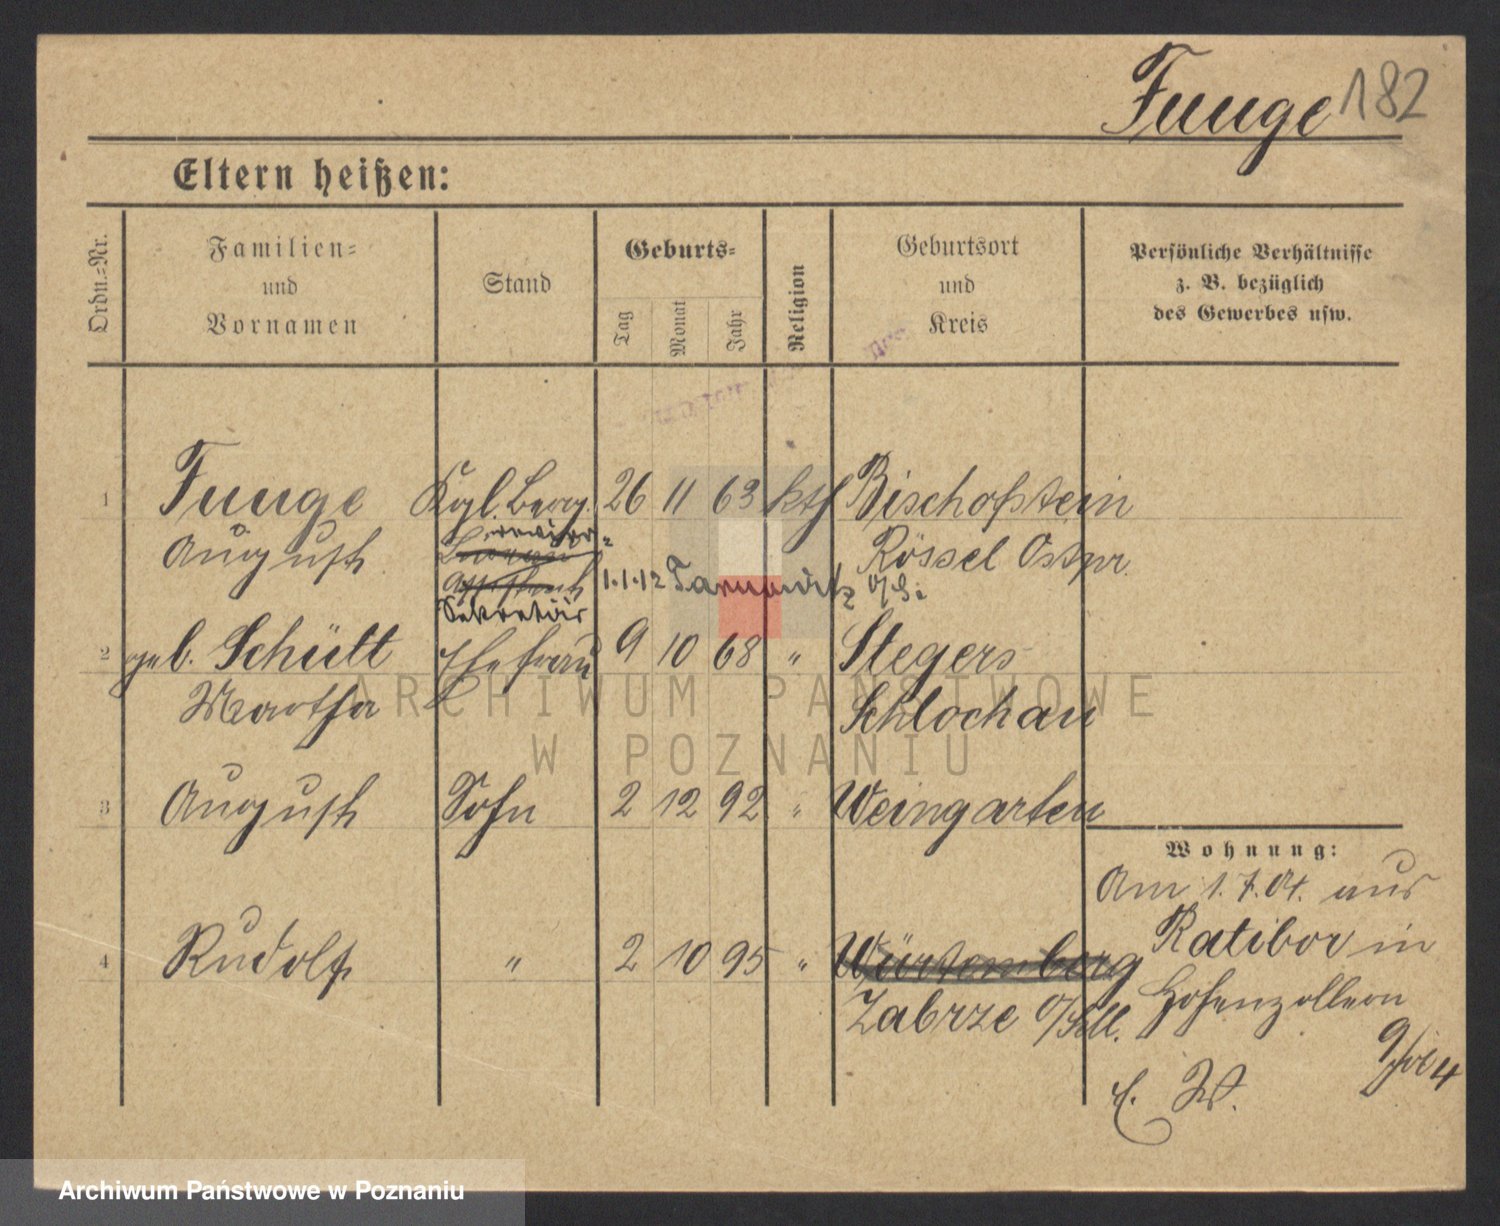 Funge 182
Eltern heißen:
Ordn.-Nr.
Familien-
und
Vornamen
Stand
Geburts-
Tag
Monat
Jahr
Religion
Geburtsort
und
Kreis
Persönliche Verhältnisse
z. B. bezüglich
des Gewerbes usw.
1 Funge Kgl. Berg. 26 11 63 kth Bischofstein
August revier- Rössel Ostpr.
Assistent 1.1.12 Tarnowitz O/S.
Sekretär
2 geb. Schütt Ehefrau 9 10 68 " Stegers
Martha Schlochau
ARCHIWUM PAŃSTWOWE
W POZNANIU
3 August Sohn 2 12 92 " Weingarten
Wohnung:
Am 1.7.04. aus
Ratibor in
Hohenzollern
4 Rudolf " 2 10 95 " Würtemberg
Zabrze O/Schl.
E. W.
Archiwum Państwowe w Poznaniu